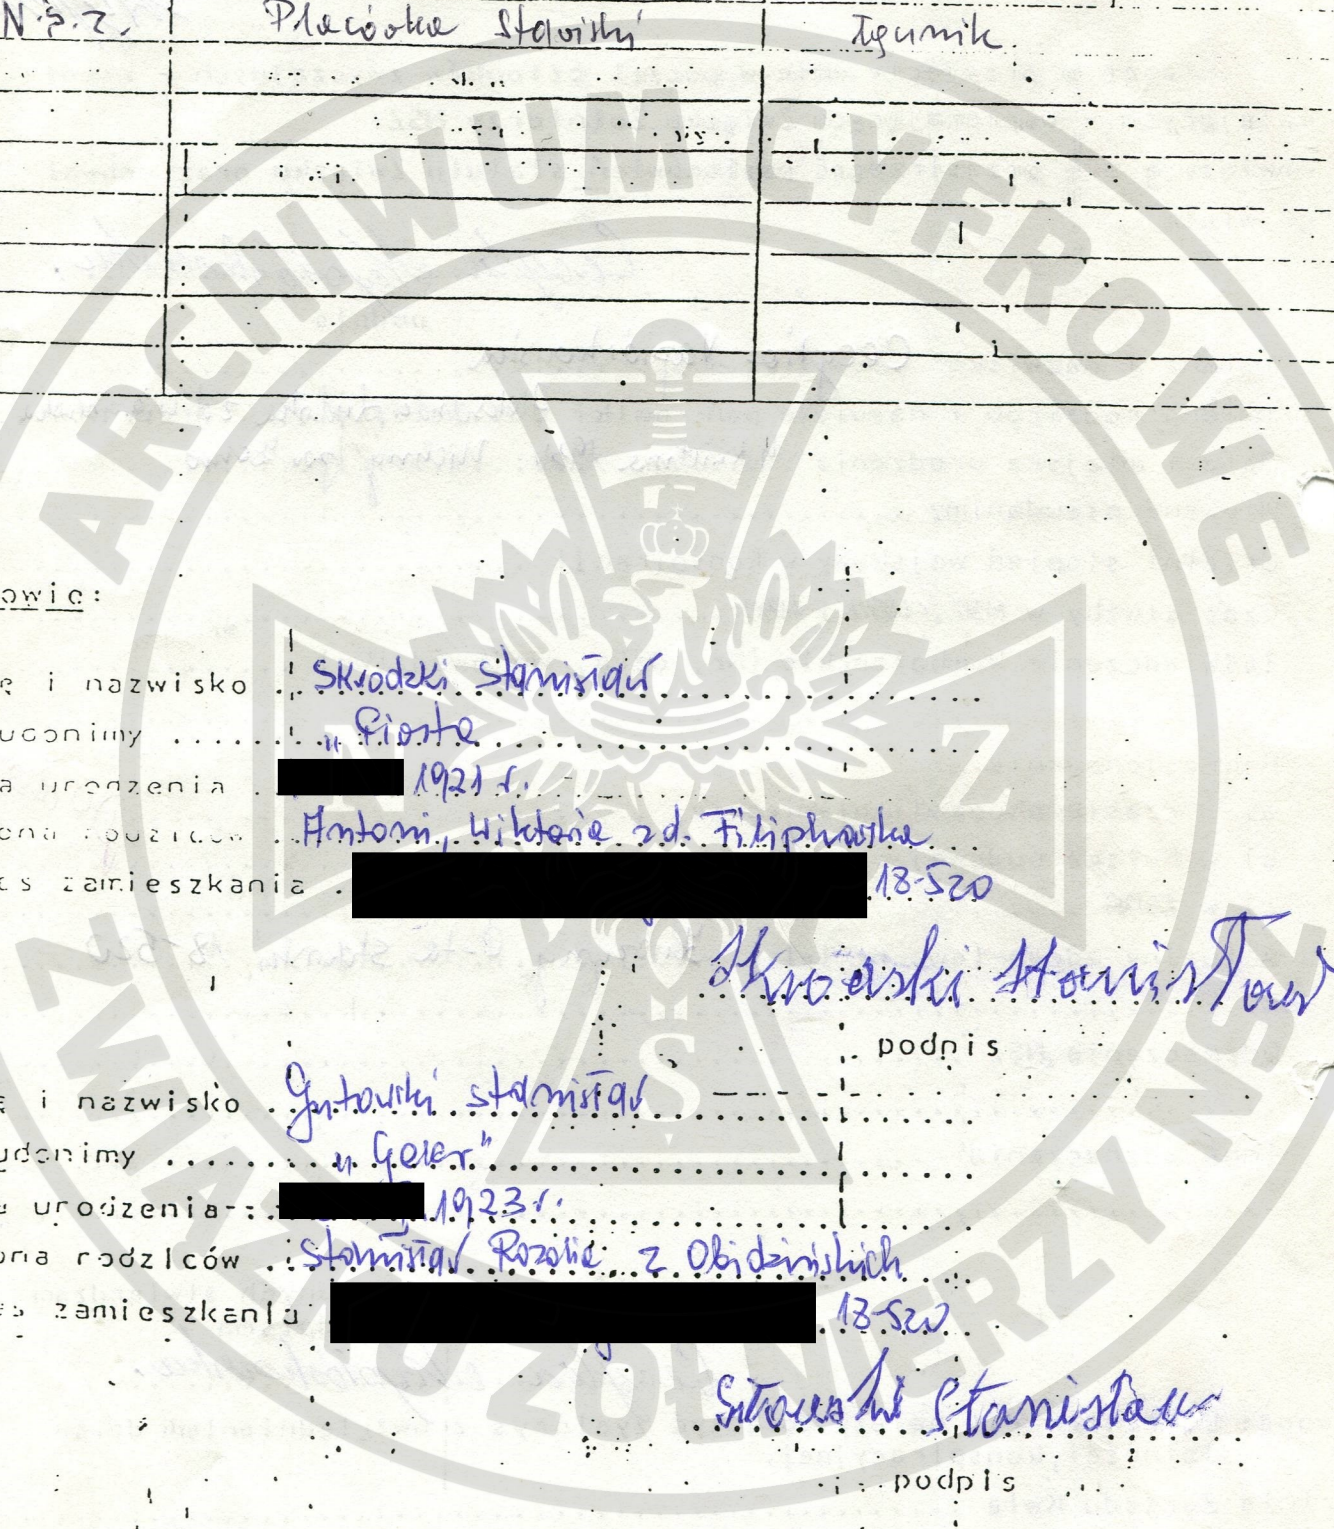 N.S.Z. Placówka Stawiski łącznik.
owie:
ę i nazwisko . Skrodzki Stanisław
udonimy ...... „Piostę
a urodzenia . 1921 r.
ona rodziców .. Antoni, Wiktoria z d. Filipkowska
es zamieszkania . 18-520
Skrodzki Stanisław
podpis
ę i nazwisko .. Gutowski Stanisław
udonimy ....... „Geler”
a urodzenia 1923 r.
ona rodziców .. Stanisław Rozalia z Obidzińskich
es zamieszkania 18-520
Stanisław
podpis
ARCHIWUM CYFROWE
ZWIĄZKU ŻOŁNIERZY NSZ
Z
S